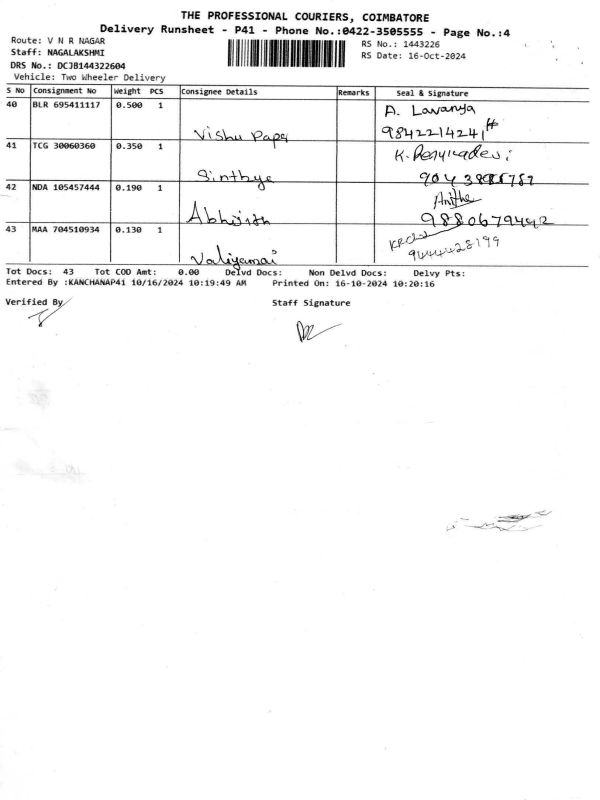 THE PROFESSIONAL COURIERS, COIMBATORE
Delivery Runsheet - P41 - Phone No.:0422-3505555 - Page No.:4
Route: V N R NAGAR
RS No.: 1443226
Staff: NAGALAKSHMI
RS Date: 16-Oct-2024
DRS No.: DCJB144322604
Vehicle: Two Wheeler Delivery
S No Consignment No Weight PCS Consignee Details Remarks Seal & Signature
40 BLR 695411117 0.500 1 A. Lavanya
Vishu Papa 9842214241
41 TCG 30060360 0.350 1
Sinthye
42 NDA 105457444 0.190 1 Anitha
Abhijith 9880679442
43 MAA 704510934 0.130 1
Valiyamai 9444428199
Tot Docs: 43 Tot COD Amt: 0.00 Delvd Docs: Non Delvd Docs: Delvy Pts:
Entered By :KANCHANAP41 10/16/2024 10:19:49 AM Printed On: 16-10-2024 10:20:16
Verified By Staff Signature